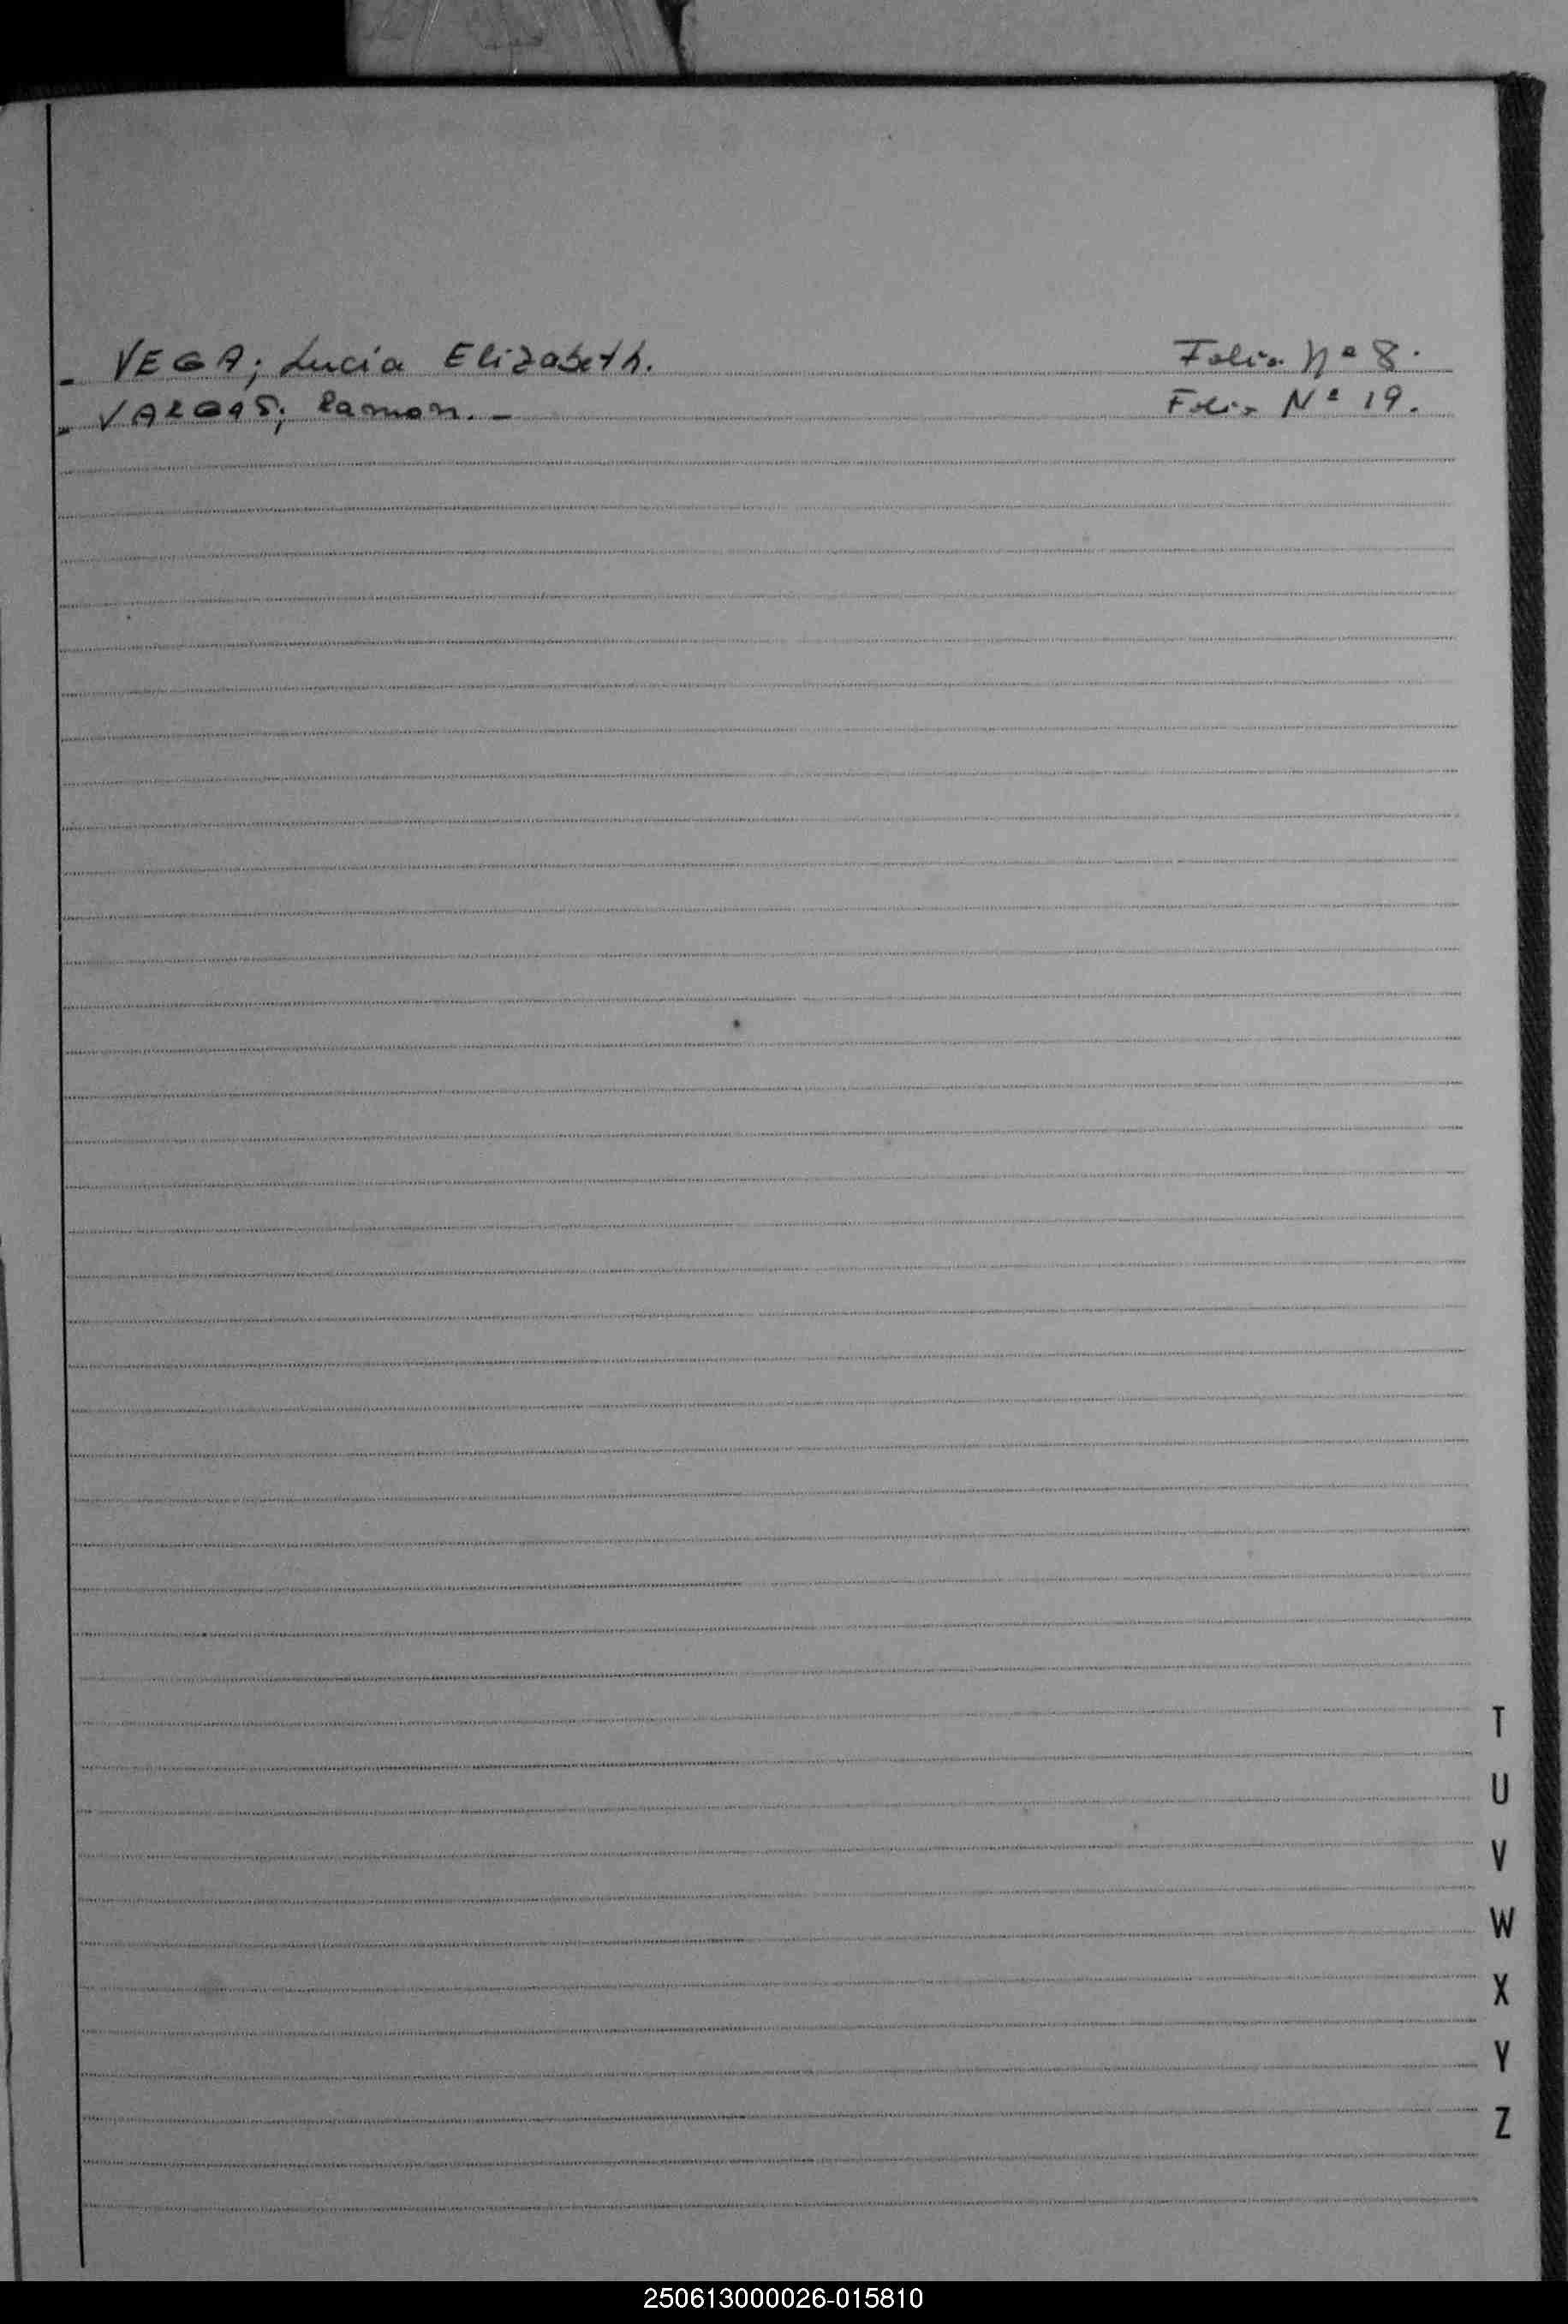 - VEGA; Lucía Elizabeth. Folio Nº 8.
- VARGAS; Ramon. - Folio Nº 19.
T
U
V
W
X
Y
Z
250613000026-015810